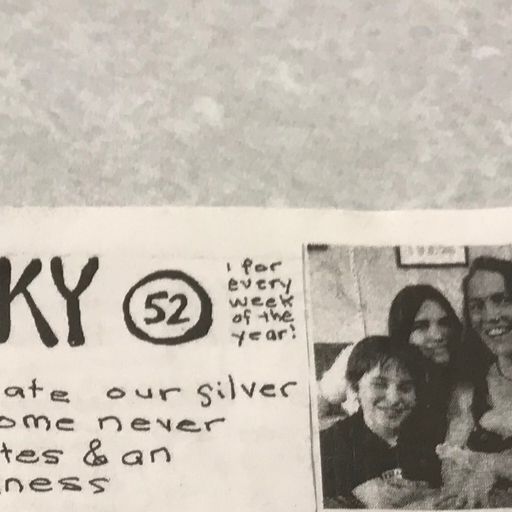 KY 52
1 for
every
week
of the
year!
ate our silver
ome never
tes & an
ness